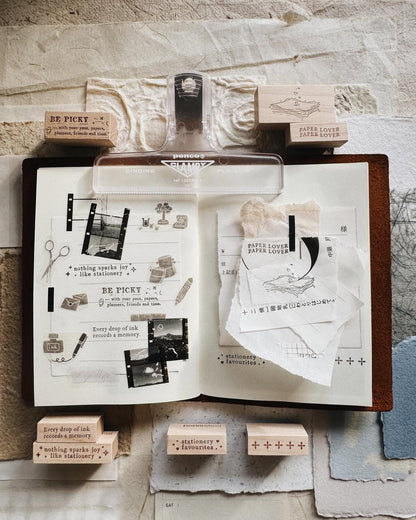 BE PICKY
— with your pens, papers,
planners, friends and time.
PAPER LOVER
PAPER LOVER
penco
CLAMPY
nothing sparks joy
like stationery
BE PICKY
— with your pens, papers,
planners, friends and time.
Every drop of ink
records a memory.
PAPER LOVER
PAPER LOVER
様
stationery
favourites
Every drop of ink
records a memory.
nothing sparks joy
like stationery
stationery
favourites
SAT